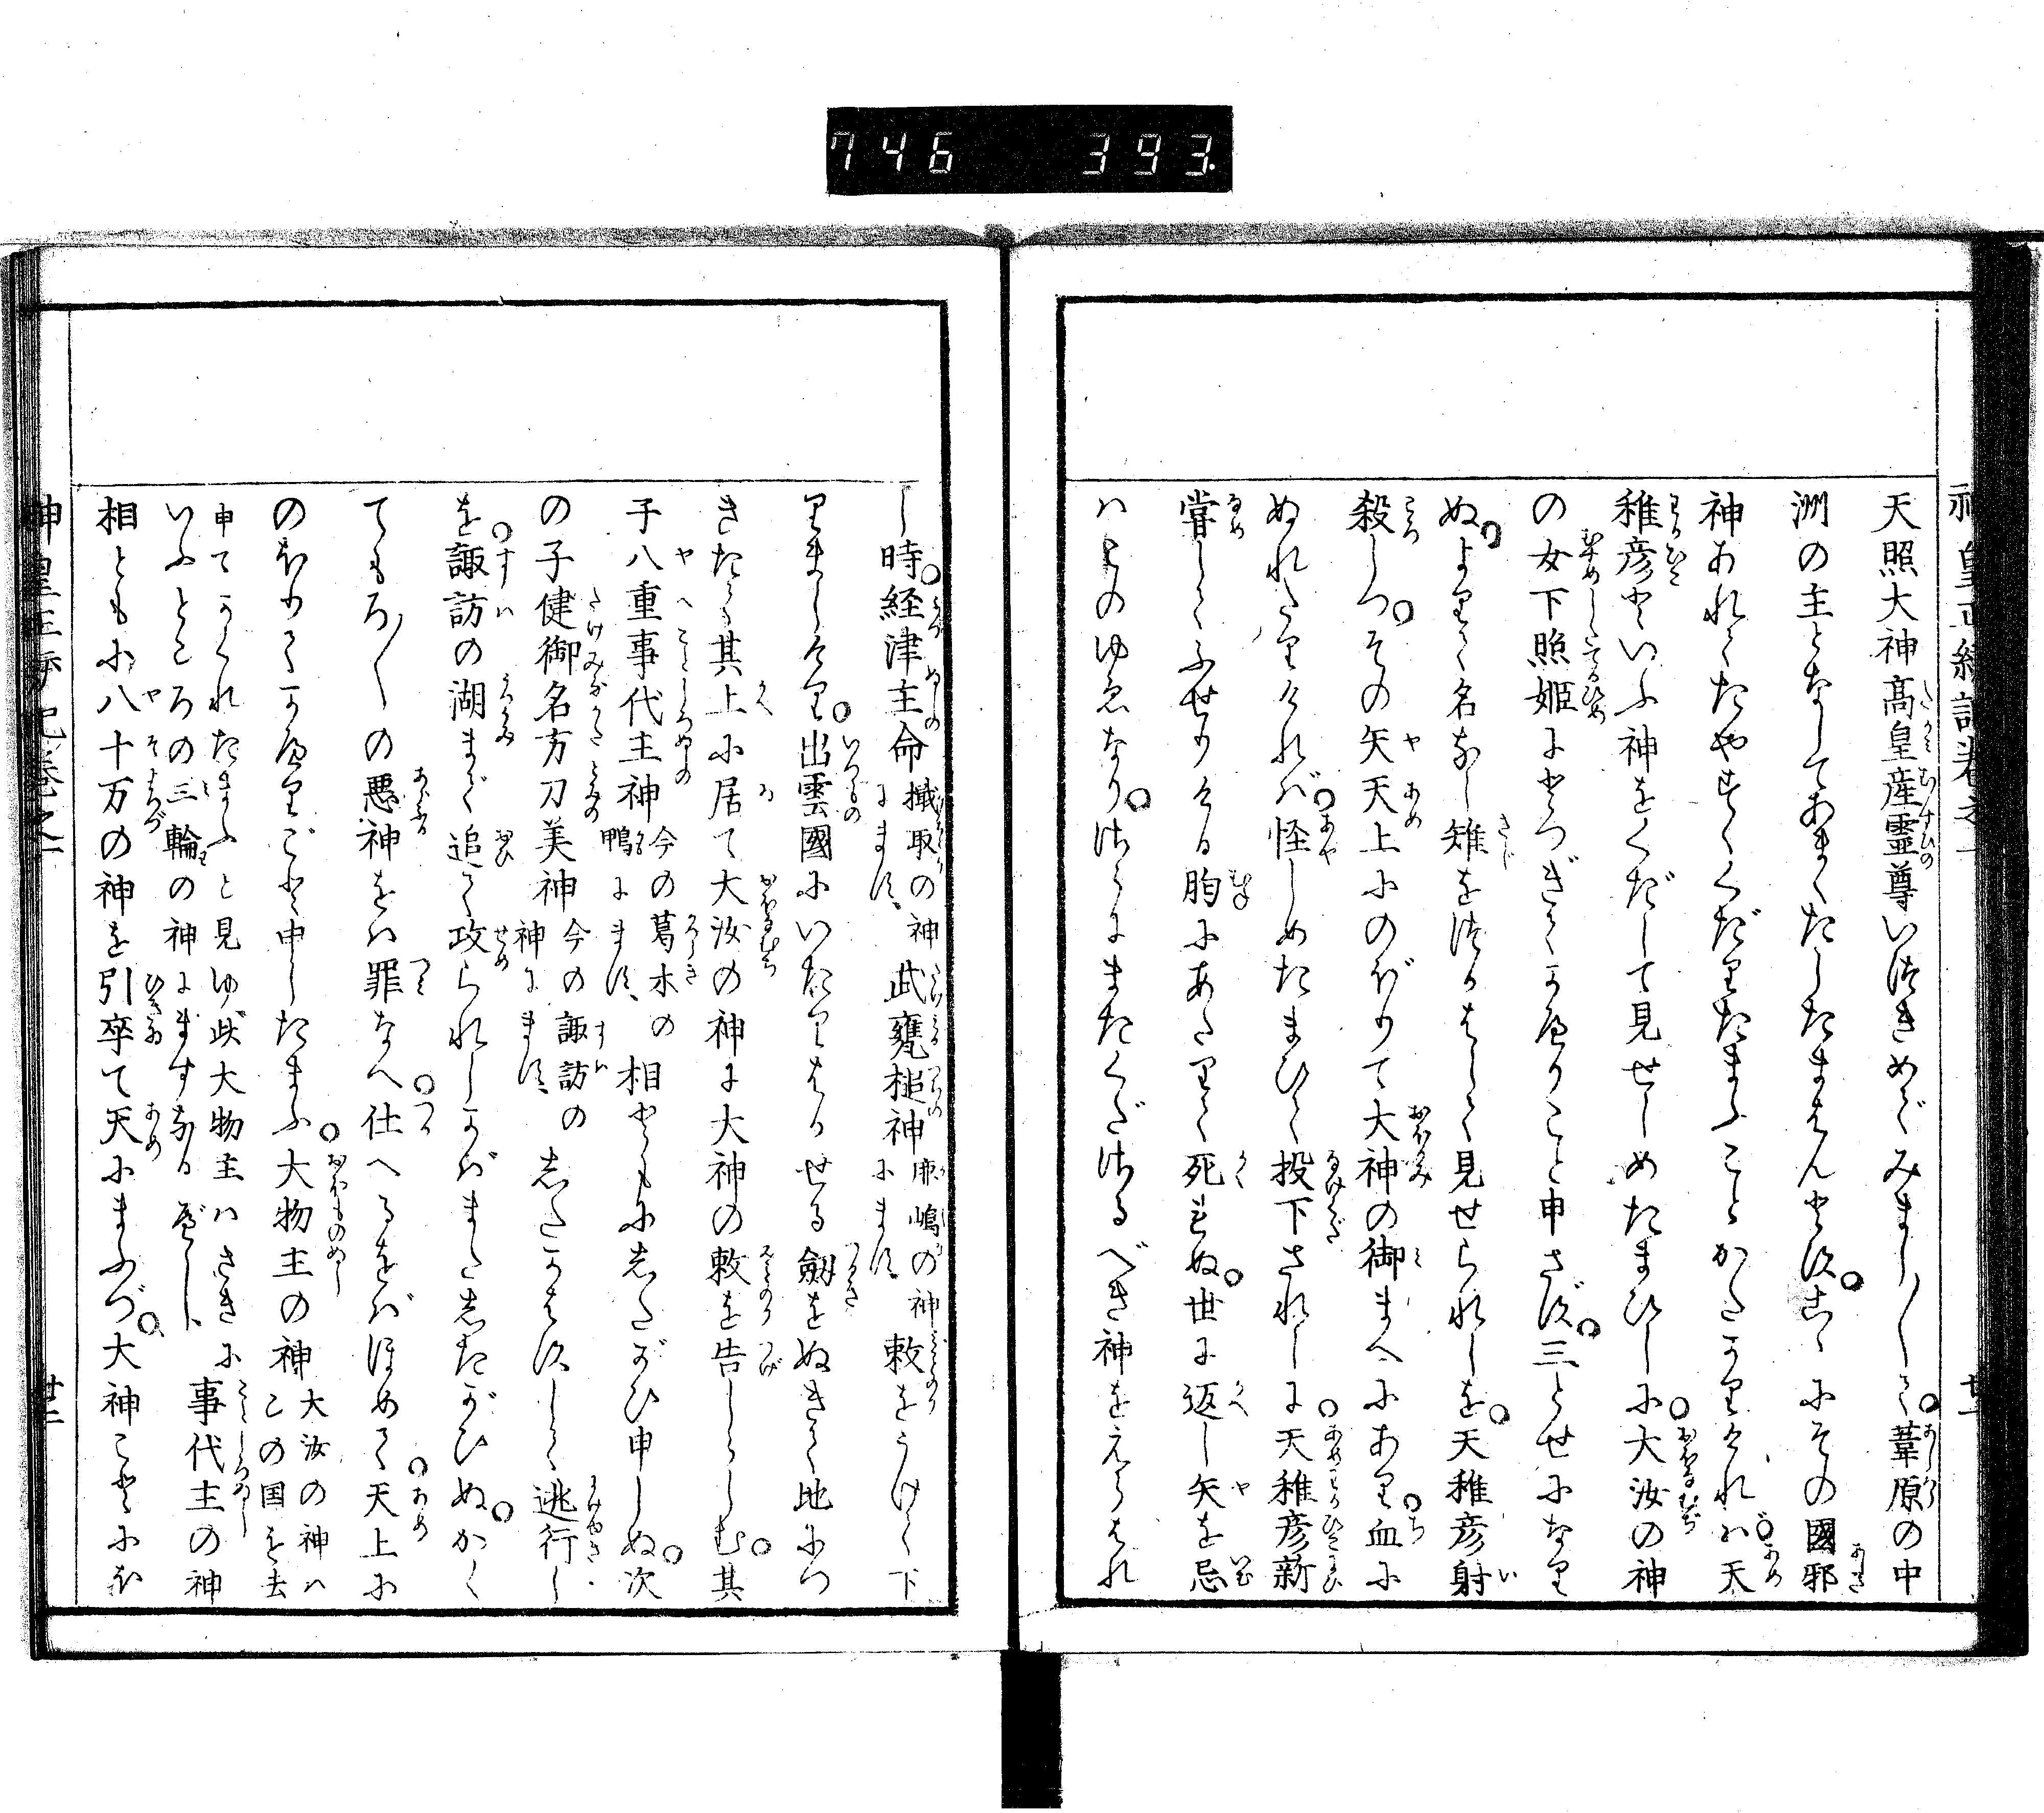 746 393.
天照大神高皇産霊尊いつきめぐみまし〱て葦原の中
洲の主となしてあまくたしたまはんとす。こゝにその國邪
神あれてたやすくくだりたまふことかたかりければ天
稚彦といふ神をくだして見せしめたまひしに大汝の神
の女下照姫にとつぎてかへりこと申さず。三とせになり
ぬ。よりて名なし雉をつかはして見せられしを。天稚彦射
殺しつ。その矢天上にのぼりて大神の御まへにあり血に
ぬれたりければ怪しめたまひて投下されしに天稚彦新
嘗してふせりける胸にあたりて死にけぬ。世に返し矢を忌
はこのゆゑなり。さらにまたくださるべき神をえらはれ
し時経津主命 檝取の神にます 武甕槌神 鹿嶋の神にます 敕をうけて下
りましけり。出雲國にいたりはかせる劔をぬきて地につ
きたて其上に居て大汝の神に大神の敕を告しらしむ。其
子八重事代主神 今の葛木の鴨にます 相ともにしたがひ申しぬ。次
の子健御名方刀美神 今の諏訪の神にます したかはずして逃行し
を諏訪の湖まで追て攻られしかばまたしたがひぬ。かく
てもろ〱の悪神をは罪なへ仕へるをばほめて天上に
のぼりてかへりごと申したまふ。大物主の神 大汝の神はこの国を去
申てかくれたまふと見ゆ此大物主はさきにいふところの三輪の神にますなるべし 事代主の神
相ともに八十万の神を引卒て天にまふづ。大神ことにほ
神皇正統記巻之一 廿二